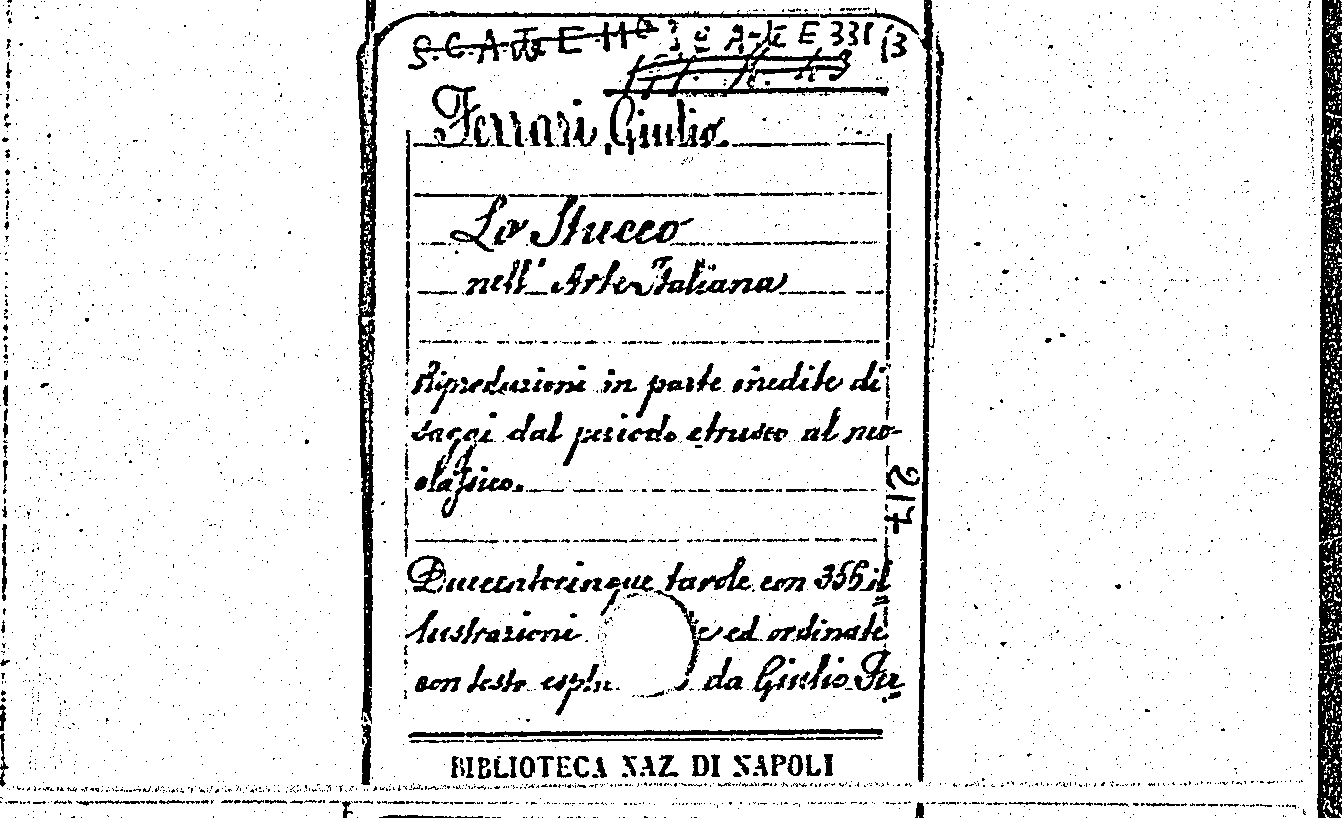 3ª E 331 13
Ferrari, Giulio.
Lo Stucco
nell'Arte Italiana
Riproduzioni in parte inedite di
saggi dal periodo etrusco al neo-
classico.
217
Duecentocinque tavole con 356 il=
lustrazioni e ed ordinate
con testo da Giulio Fer=
BIBLIOTECA NAZ. DI NAPOLI